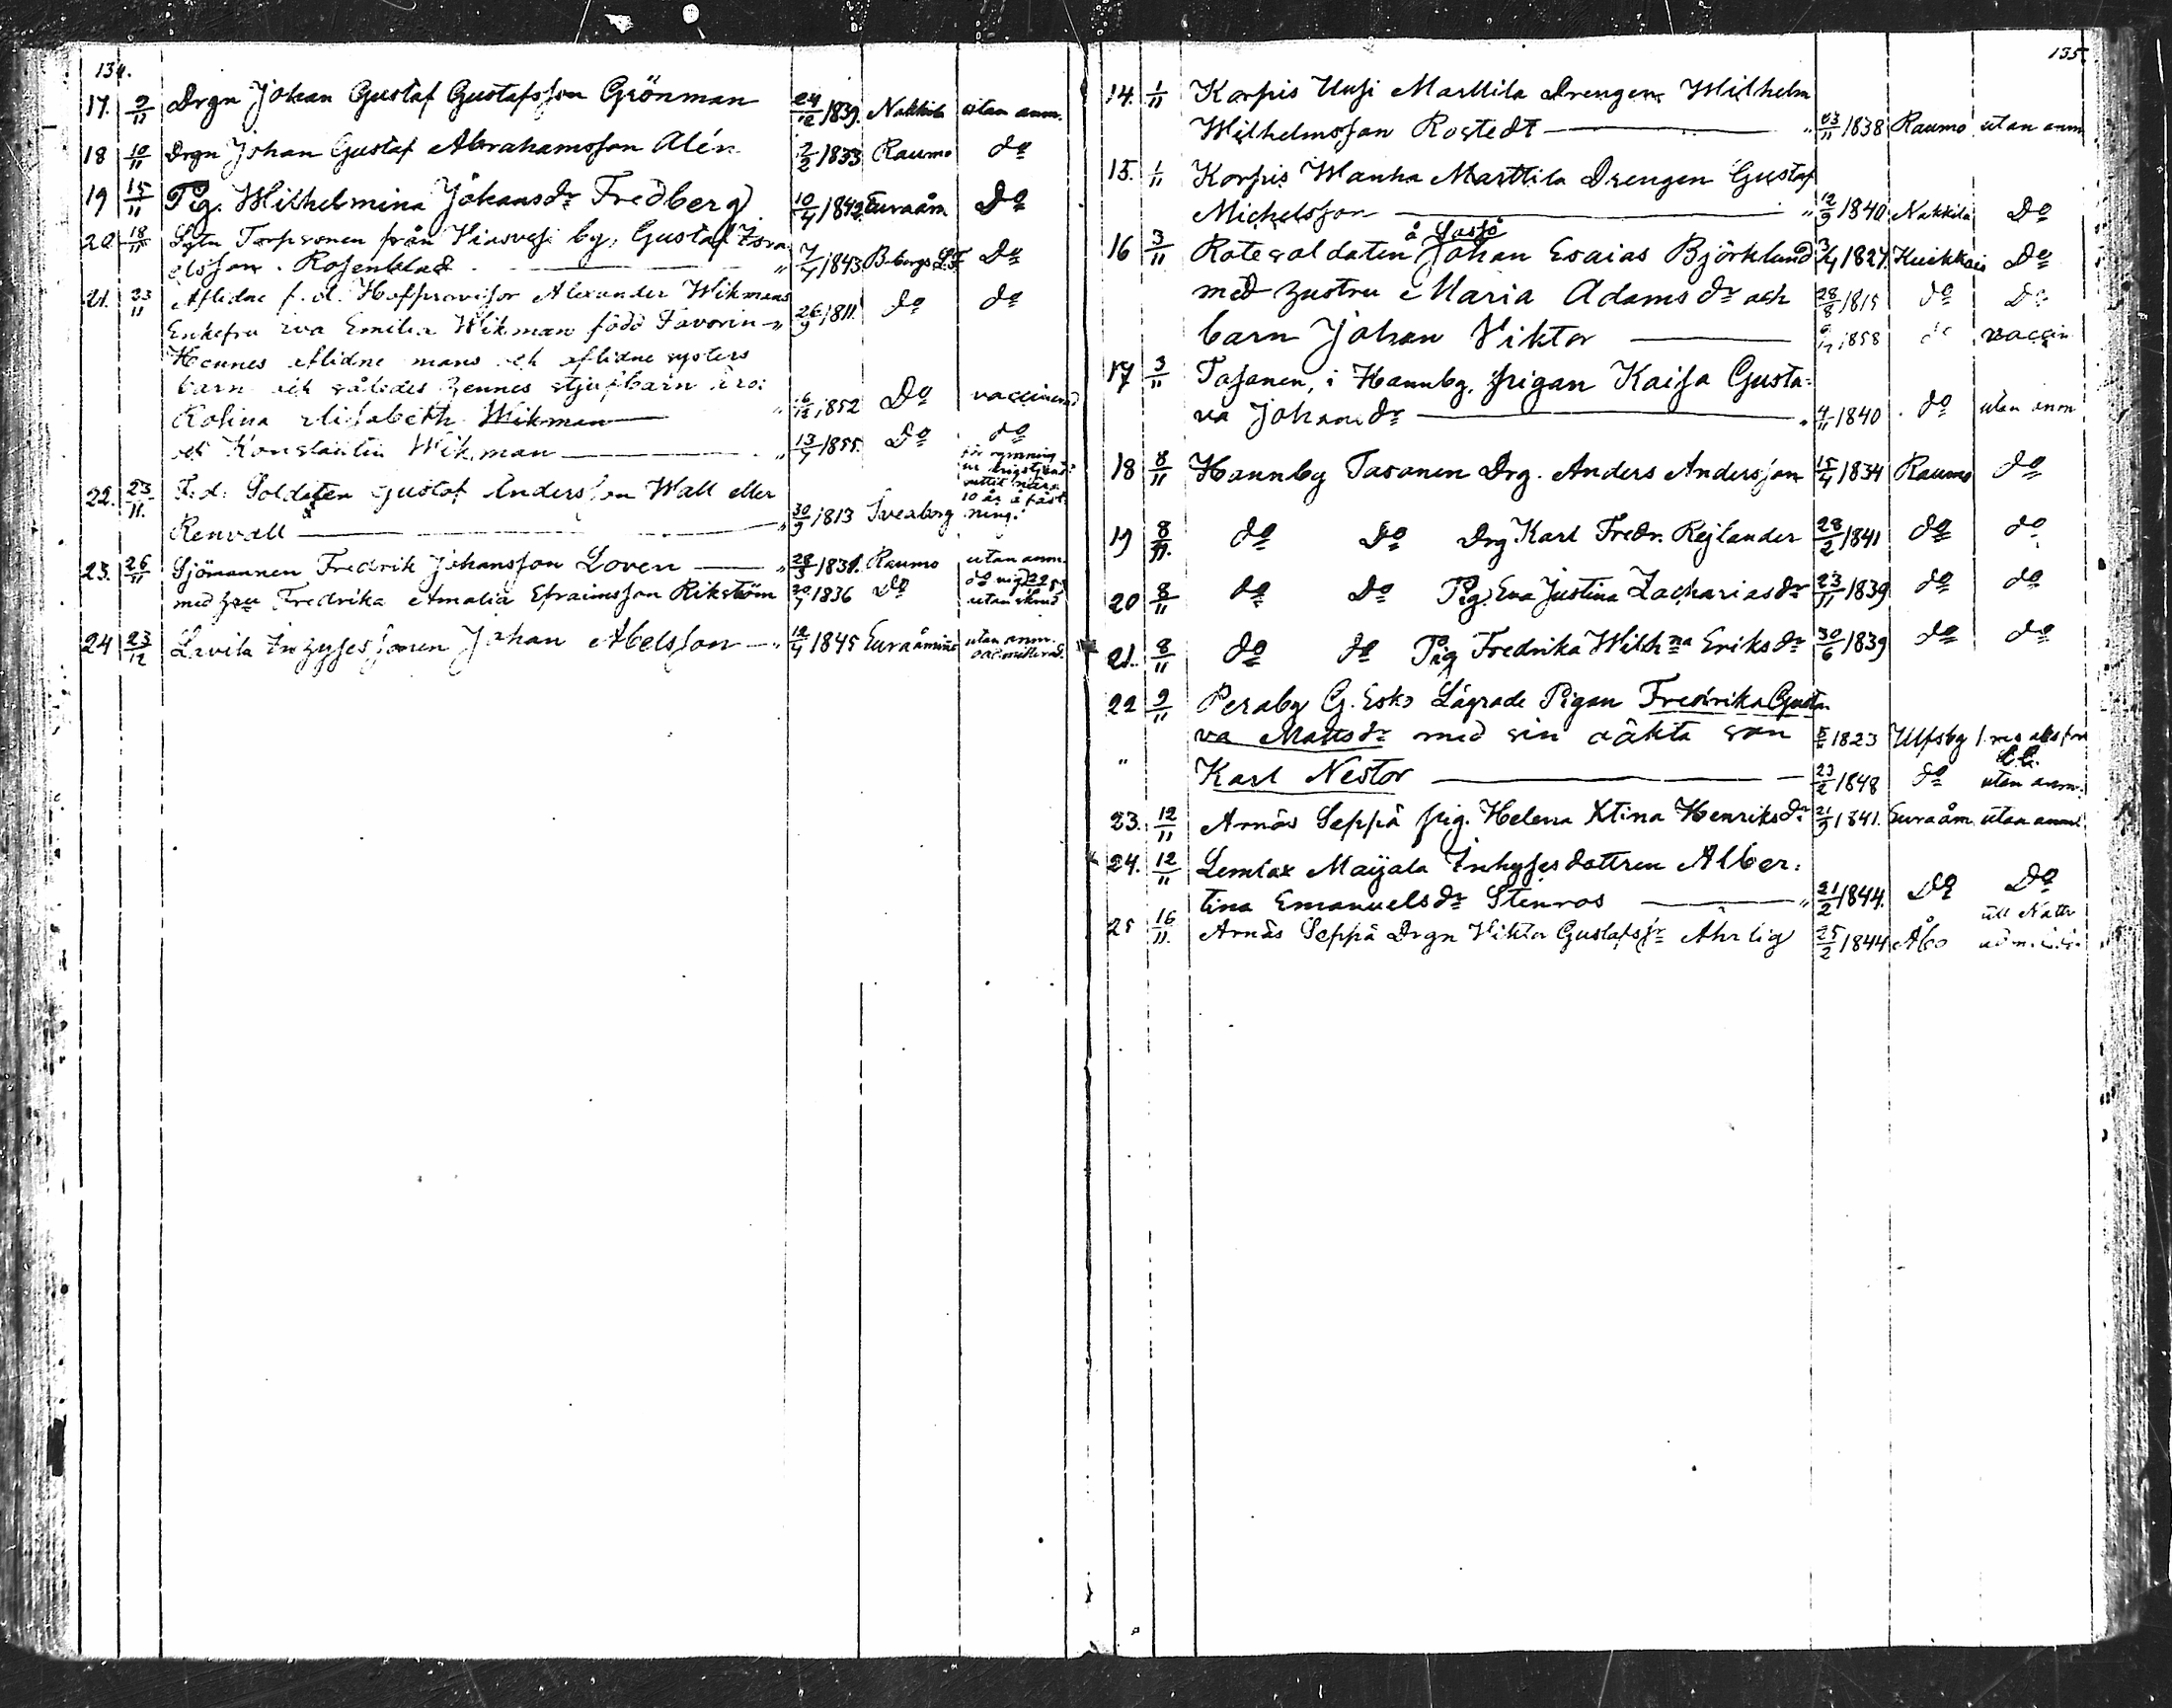 134.
17. 9/11 Drgn Johan Gustaf Gustafsson Grönman 24/12 1839. Nakkila utan anm.
18 10/11 Drgn Johan Gustaf Abrahamsson Alén 2/2 1833 Raumo do
19 15/11 Pig. Wilhelmina Johansdr Fredberg 10/4 1842 Euraåm Do
20. 18/11 Sytn Torpsonen från Viasvesi by, Gustaf Isra-
elsson Rosenblad " 7/4 1843 B-borgs L.F. Do
21. 23/11 Aflidne f. d. Hofprovisor Alexander Wikmans
Enkefru Eva Emilia Wikman född Favorin " 26/9 1811. do do
Hennes aflidne mans och aflidne systers
barn och således hennes stjufbarn äro:
Rosina Elisabeth Wikman " 6/12 1852 Do vaccinerad
och Konstantin Wikman " 13/4 1855. Do do
22. 23/11. F. d. Soldaten Gustaf Andersson Wall eller
Renvall " 30/9 1813 Sveaborg
för rymning
ur krigstjenst
suttit nära
10 år å fäst-
ning.
23. 26/11 Sjömannen Fredrik Johansson Loven " 1831. Raumo utan anm.
med hru Fredrika Amalia Efraimsson Rikström 1836 Do
utan
24 23/12 Lavila Inhysessonen Johan Abelsson " 12/4 1845 Euraåminne utan anm.
oadmitterad.
135.
14. 1/11 Korpis Uusi Marttila Drengen Wilhelm
Wilhelmsson Rostedt " 23/11 1838 Raumo utan anm
15. 1/11 Korpis Wanha Marttila Drengen Gustaf
Michelsson " 12/9 1840 Nakkila Do
16 3/11 Rotesoldaten å Sassi Johan Esaias Björklund 3/4 1827. Kuikkais Do
med hustru Maria Adamsdr och 28/8 1815 do Do
barn Johan Viktor 1858 do vaccin
17 3/11 Tasanen, i Hannby, pigan Kaisa Gusta-
va Johansdr " 4/11 1840 do utan anm
18 8/11 Hannby Tasanen Drg. Anders Andersson 15/4 1834 Raumo do
19 8/11. do Do Drg. Karl Fredr. Rejlander 28/2 1841 do do
20 8/11 do Do Pig. Eva Justina Zachariasdr 23/11 1839 do do
21. 8/11 do do Pig Fredrika Wilhna Eriksdr 30/6 1839 do do
22 9/11 Peraby G. Esko Lägrade Pigan Fredrika Gusta-
va Mattsdr med sin oäkta son 1823 Ulfsby
" Karl Nestor 23/2 1848 do utan anm.
23. 12/11 Arnäs Seppä pig. Helena Xtina Henriksdr 21/9 1841. Euraåm utan anm.
24. 12/11 Lemlax Maijala Inhysesdottren Alber-
tina Emanuelsdr Stenros " 21/2 1844. Do Do
25 16/11. Arnäs Seppä Drgn Viktor Gustafsson Ährlig 25/2 1844 Åbo till Nattv